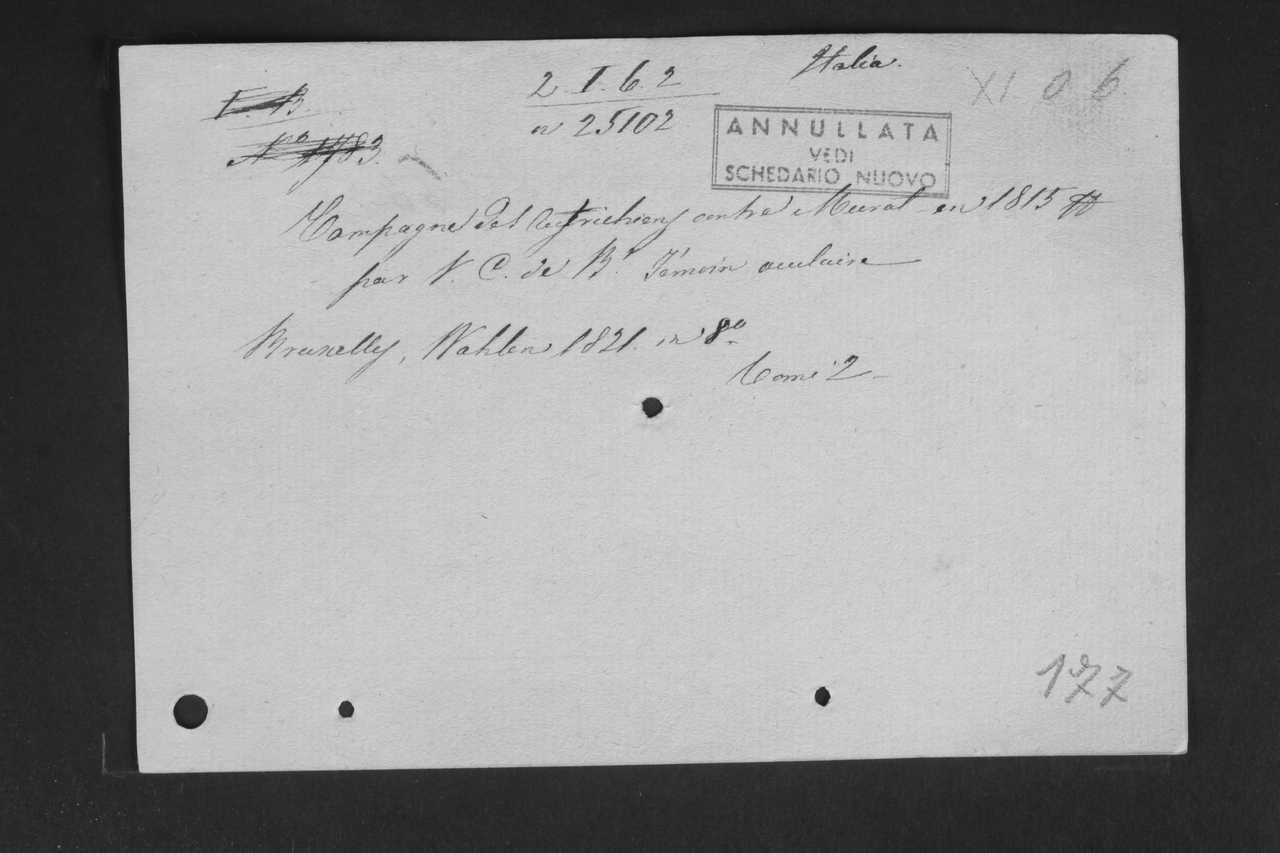 Italia.
2. I. 6. 2
XI. 0. 6.
I. B.
n 25102
ANNULLATA
VEDI
SCHEDARIO NUOVO
Campagne des Autrichiens contre Murat en 1815
par V. C. de Br. Témoin oculaire
Bruxelles, Wahlen 1821. in 8º
Tome 2
177